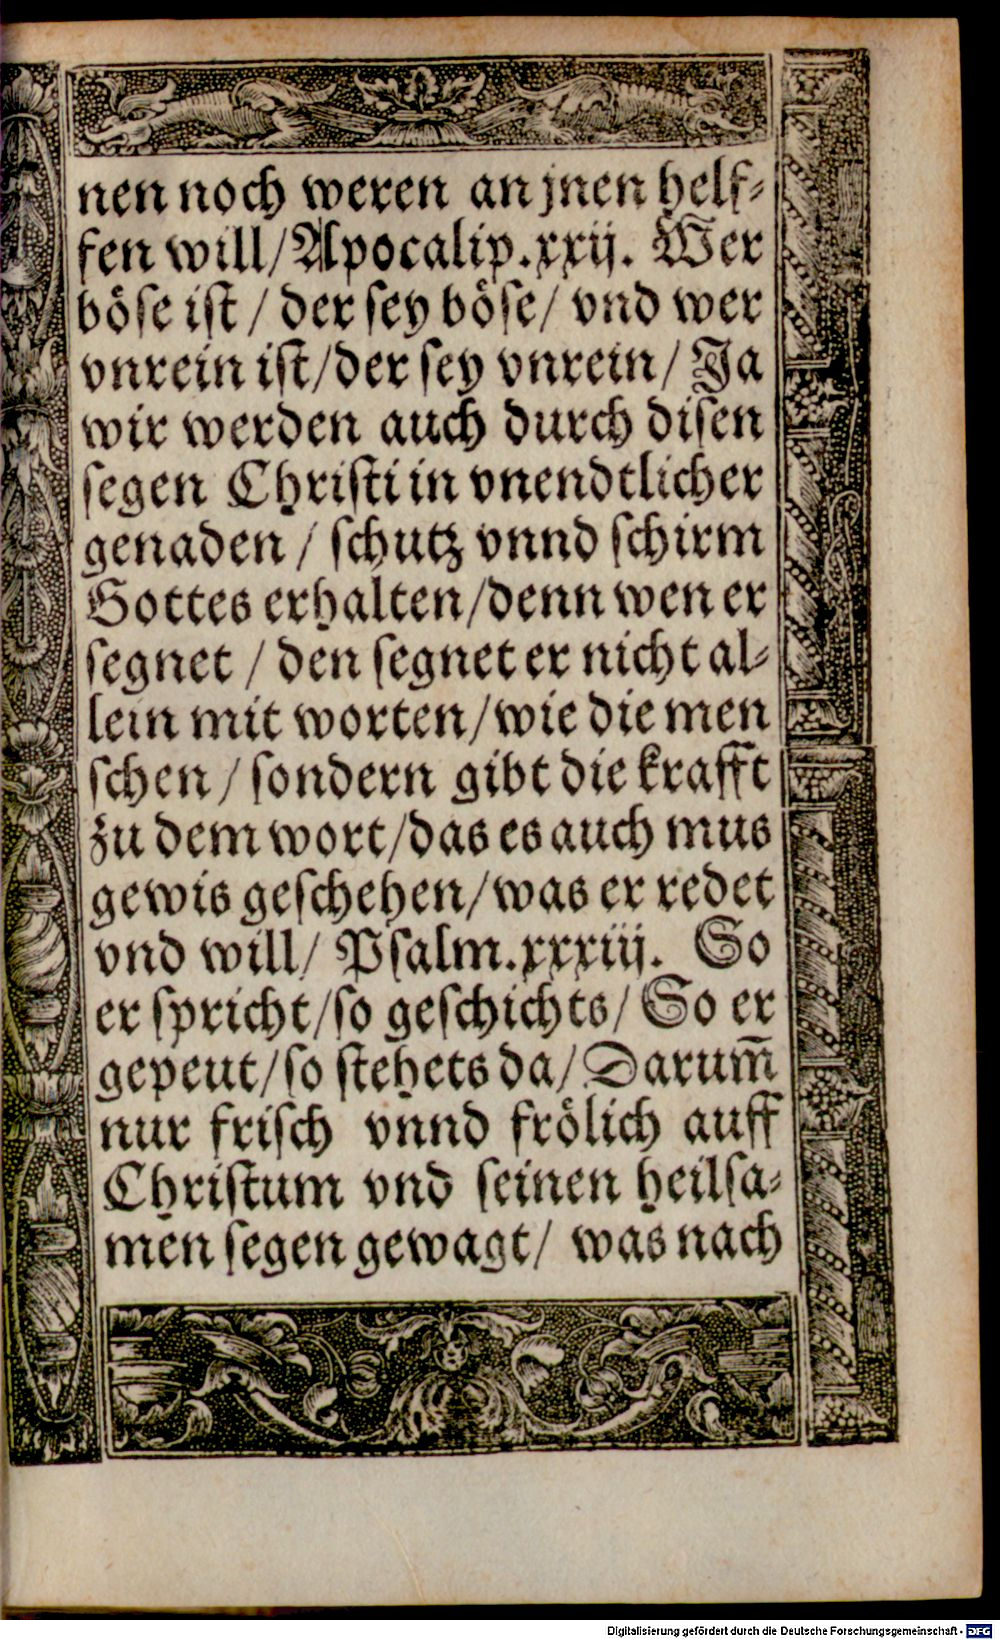 nen noch weren an jnen helf⸗
fen will/ Apocalip.xxij. Wer
böse ist / der sey böse/ vnd wer
vnrein ist/der sey vnrein/ Ja
wir werden auch durch disen
segen Christi in vnendtlicher
genaden / schutz vnnd schirm
Gottes erhalten/denn wen er
segnet / den segnet er nicht al⸗
lein mit worten/wie die men
schen / sondern gibt die krafft
zu dem wort/das es auch mus
gewis geschehen/was er redet
vnd will/ Psalm.xxxiij. So
er spricht/so geschichts/ So er
gepeut/so stehets da/ Darum̅
nur frisch vnnd frölich auff
Christum vnd seinen heilsa⸗
men segen gewagt/ was nach
Digitalisierung gefördert durch die Deutsche Forschungsgemeinschaft - DFG